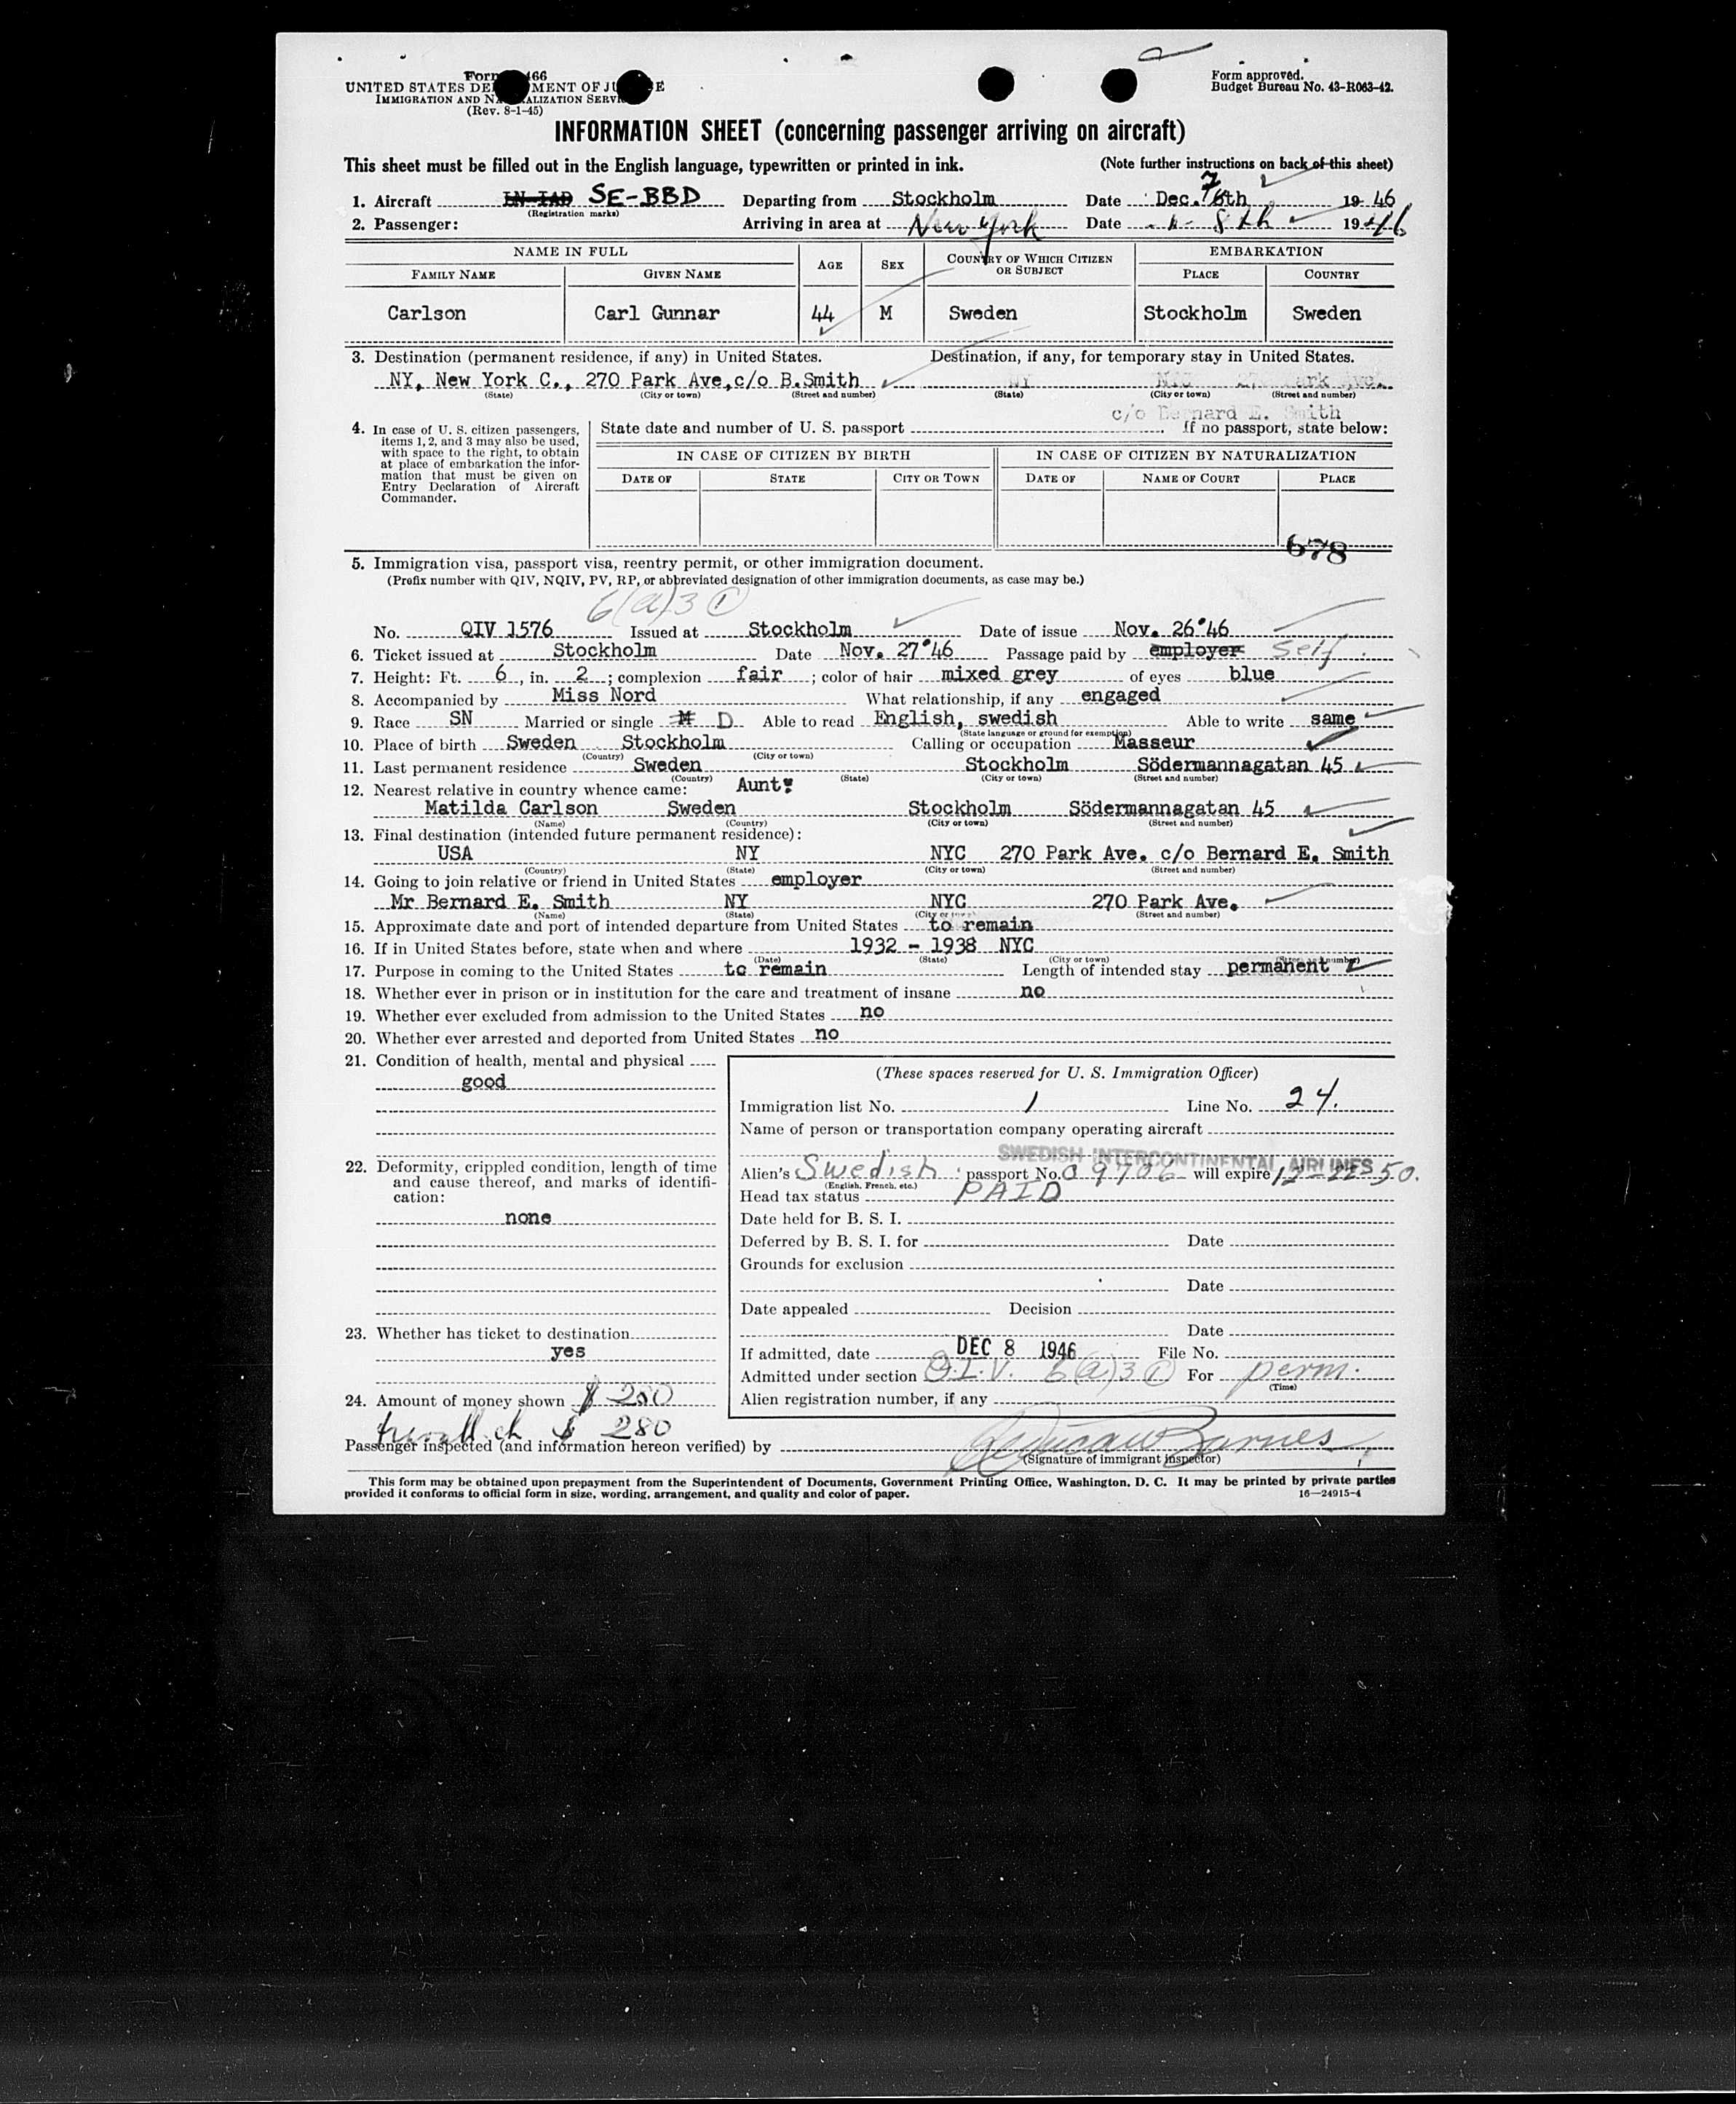 Form 466
UNITED STATES DEPARTMENT OF JUSTICE
IMMIGRATION AND NATURALIZATION SERVICE
(Rev. 8-1-45)
Form approved.
Budget Bureau No. 43-R063-42.
INFORMATION SHEET (concerning passenger arriving on aircraft)
This sheet must be filled out in the English language, typewritten or printed in ink. (Note further instructions on back of this sheet)
1. Aircraft SE-BBD Departing from Stockholm Date Dec. 7th 19 46
(Registration marks)
2. Passenger: Arriving in area at New York Date 8th 1946
NAME IN FULL AGE SEX COUNTRY OF WHICH CITIZEN OR SUBJECT EMBARKATION
FAMILY NAME GIVEN NAME PLACE COUNTRY
Carlson Carl Gunnar 44 M Sweden Stockholm Sweden
3. Destination (permanent residence, if any) in United States. Destination, if any, for temporary stay in United States.
NY, New York C., 270 Park Ave, c/o B.Smith NY NYC 270 Park Ave.
(State) (City or town) (Street and number) (State) (City or town) (Street and number)
c/o Bernard E. Smith
4. In case of U. S. citizen passengers, items 1, 2, and 3 may also be used, with space to the right, to obtain at place of embarkation the information that must be given on Entry Declaration of Aircraft Commander.
State date and number of U. S. passport If no passport, state below:
IN CASE OF CITIZEN BY BIRTH IN CASE OF CITIZEN BY NATURALIZATION
DATE OF STATE CITY OR TOWN DATE OF NAME OF COURT PLACE
678
5. Immigration visa, passport visa, reentry permit, or other immigration document.
(Prefix number with QIV, NQIV, PV, RP, or abbreviated designation of other immigration documents, as case may be.)
6(a)3 (1)
No. QIV 1576 Issued at Stockholm Date of issue Nov. 26'46
6. Ticket issued at Stockholm Date Nov. 27'46 Passage paid by employer Self
7. Height: Ft. 6, in. 2; complexion fair; color of hair mixed grey of eyes blue
8. Accompanied by Miss Nord What relationship, if any engaged
9. Race SN Married or single M D Able to read English, swedish Able to write same
(State language or ground for exemption)
10. Place of birth Sweden Stockholm Calling or occupation Masseur
(Country) (City or town)
11. Last permanent residence Sweden Stockholm Södermannagatan 45
(Country) (State) (City or town) (Street and number)
12. Nearest relative in country whence came: Aunt:
Matilda Carlson Sweden Stockholm Södermannagatan 45
(Name) (Country) (City or town) (Street and number)
13. Final destination (intended future permanent residence):
USA NY NYC 270 Park Ave. c/o Bernard E. Smith
(Country) (State) (City or town) (Street and number)
14. Going to join relative or friend in United States employer
Mr Bernard E. Smith NY NYC 270 Park Ave.
(Name) (State) (City or town) (Street and number)
15. Approximate date and port of intended departure from United States to remain
16. If in United States before, state when and where 1932 - 1938 NYC
(Date) (State) (City or town) (Street and number)
17. Purpose in coming to the United States to remain Length of intended stay permanent
18. Whether ever in prison or in institution for the care and treatment of insane no
19. Whether ever excluded from admission to the United States no
20. Whether ever arrested and deported from United States no
21. Condition of health, mental and physical
good
22. Deformity, crippled condition, length of time and cause thereof, and marks of identification:
none
23. Whether has ticket to destination
yes
24. Amount of money shown $ 250
$ 280
(These spaces reserved for U. S. Immigration Officer)
Immigration list No. 1 Line No. 24.
Name of person or transportation company operating aircraft
SWEDISH INTERCONTINENTAL AIRLINES
Alien's Swedish passport No. 09706 will expire 12-22-50.
(English, French, etc.)
Head tax status PAID
Date held for B. S. I.
Deferred by B. S. I. for Date
Grounds for exclusion
Date
Date appealed Decision
Date
If admitted, date DEC 8 1946 File No.
Admitted under section Q.I.V. 6(a)3 (1) For perm.
(Time)
Alien registration number, if any
Passenger inspected (and information hereon verified) by Barnes
(Signature of immigrant inspector)
This form may be obtained upon prepayment from the Superintendent of Documents, Government Printing Office, Washington, D. C. It may be printed by private parties
provided it conforms to official form in size, wording, arrangement, and quality and color of paper. 16—24915-4